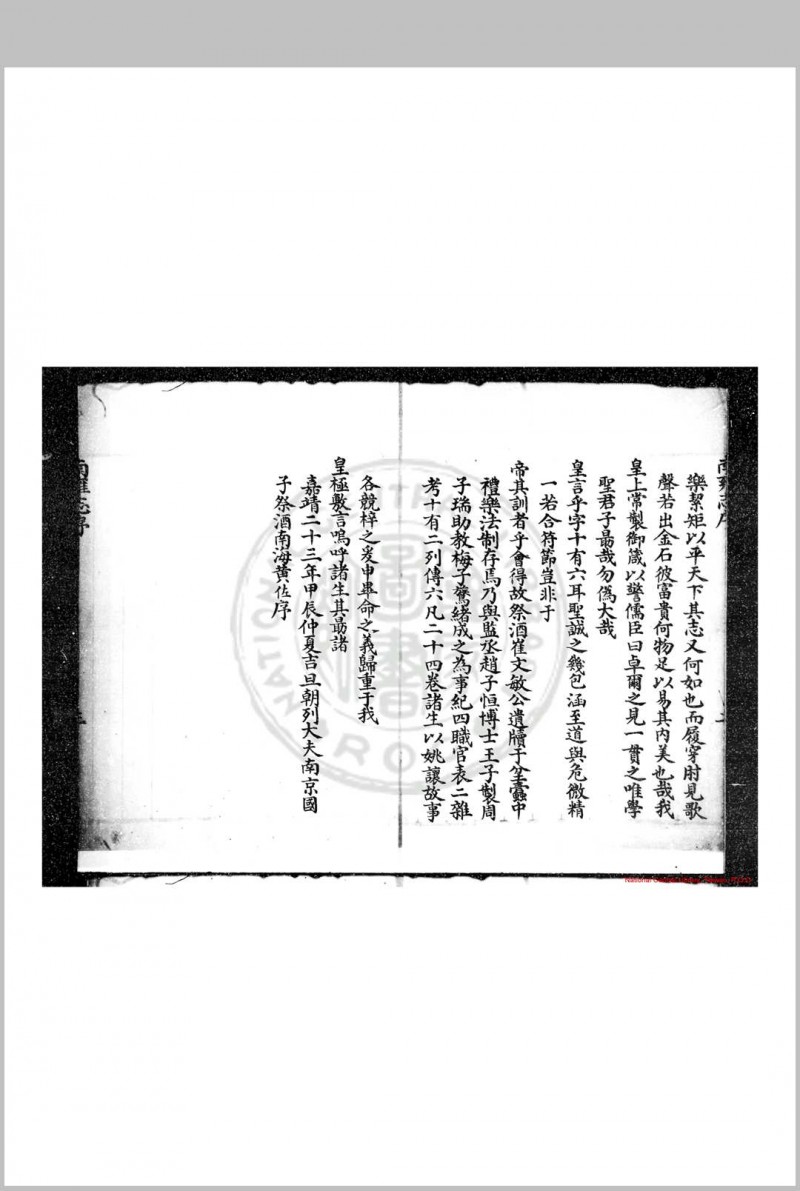 樂絜矩以平天下其志又何如也而履穿肘見歌
聲若出金石彼富貴何物足以易其內美也哉我
皇上常製御箴以警儒臣曰卓爾之見一貫之唯學
聖君子勗哉勿偽大哉
皇言乎字十有六耳聖誠之幾包涵至道與危微精
一若合符節豈非于
帝其訓者乎會得故祭酒崔文敏公遺牘于坌蠹中
禮樂法制存焉乃與監丞趙子恒博士王子製周
子瑞助教梅子鶚緒成之為事紀四職官表二雜
考十有二列傳六凡二十四卷諸生以姚讓故事
各競梓之爰申畢命之義歸重于我
皇極敷言嗚呼諸生其勗諸
嘉靖二十三年甲辰仲夏吉旦朝列大夫南京國
子祭酒南海黃佐序
南雍志序